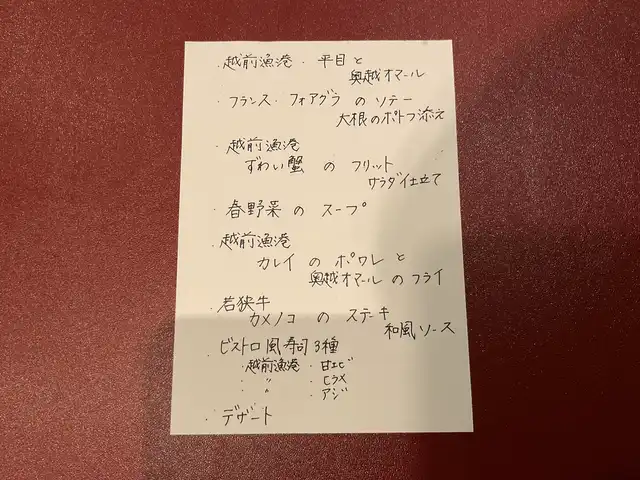 ・越前漁港・平目と
奥越オマール
・フランス・フォアグラ の ソテー
大根のポトフ添え
・越前漁港
ずわい蟹 の フリット
サラダ仕立て
・春野菜 の スープ
・越前漁港
カレイ の ポワレ と
奥越オマール の フライ
・若狭牛
カメノコ の ステーキ
和風ソース
・ビストロ風寿司3種
・越前漁港・甘エビ
・〃・ヒラメ
・〃・アジ
・デザート